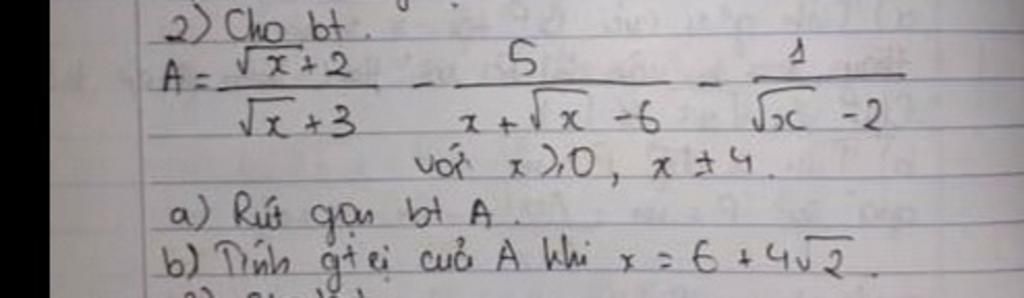 2) Cho bt.
A = \frac{\sqrt{x}+2}{\sqrt{x}+3} - \frac{5}{x+\sqrt{x}-6} - \frac{1}{\sqrt{x}-2}
với x ≥ 0, x ≠ 4.
a) Rút gọn bt A.
b) Tính gtrị của A khi x = 6 + 4√2.